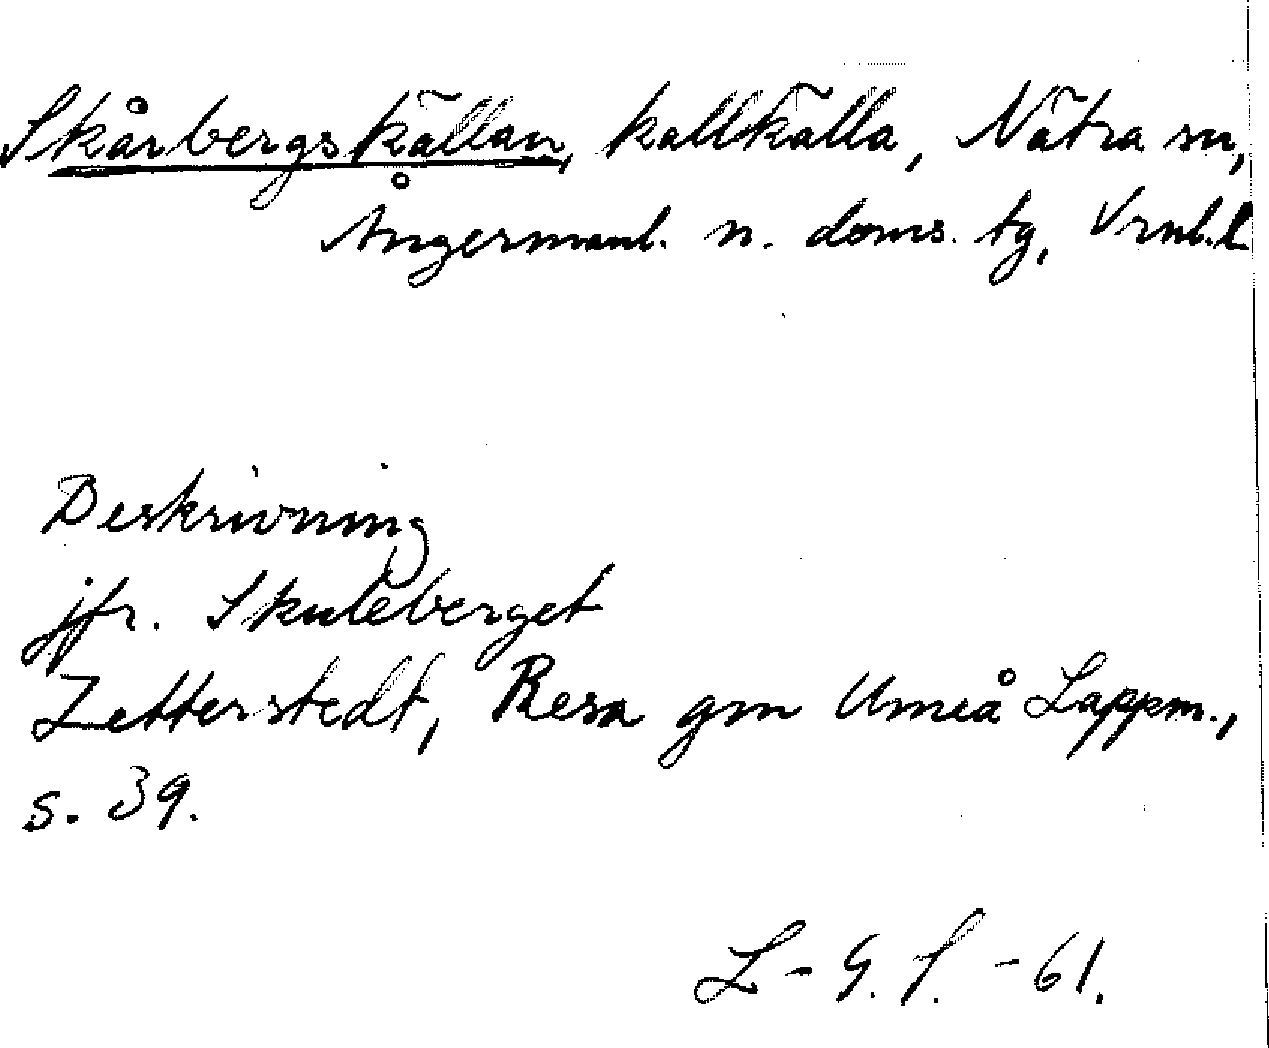 Skårbergskällan, kallkälla, Nätra sn,
Ångermanl. n. doms. tg, Vrnl. l
Beskrivning
jfr. Skuleberget
Zetterstedt, Resa gm Umeå Lappm.,
s. 39.
L-G. S. -61.